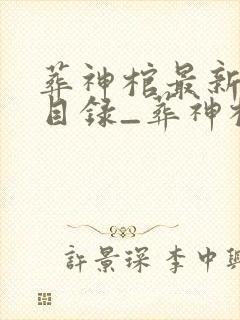 葬神棺最新
目録_葬神
許景琛 李中